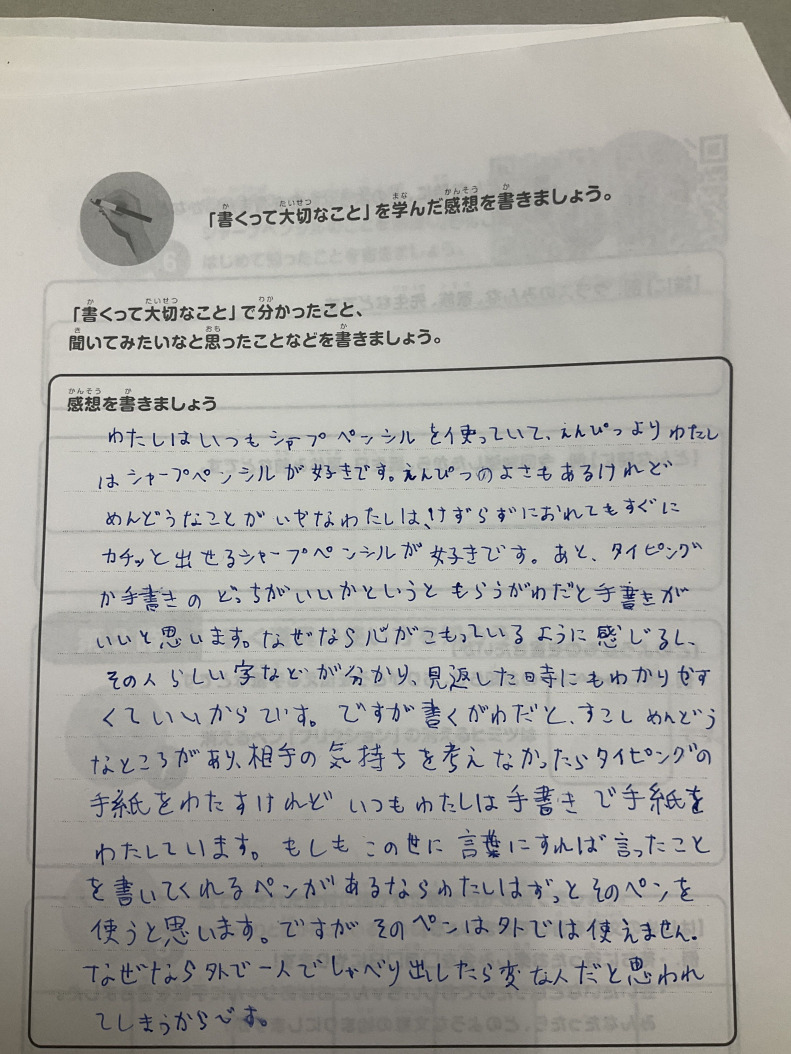 「書くって大切なこと」を学んだ感想を書きましょう。
「書くって大切なこと」で分かったこと、
聞いてみたいなと思ったことなどを書きましょう。
感想を書きましょう
わたしはいつもシャープペンシルを使っていて、えんぴつよりわたし
はシャープペンシルが好きです。えんぴつのよさもあるけれど
めんどうなことがいやなわたしは、けずらずにおれてもすぐに
カチッと出せるシャープペンシルが好きです。あと、タイピング
か手書きのどっちがいいかというともらうがわだと手書きが
いいと思います。なぜなら心がこもっているように感じるし、
その人らしい字などが分かり、見返した時にもわかりやす
くていいからです。ですが書くがわだと、すこしめんどう
なところがあり、相手の気持ちを考えなかったらタイピングの
手紙をわたすけれどいつもわたしは手書きで手紙を
わたしています。もしもこの世に言葉にすれば言ったこと
を書いてくれるペンがあるならわたしはずっとそのペンを
使うと思います。ですがそのペンは外では使えません。
なぜなら外で一人でしゃべり出したら変な人だと思われ
てしまうからです。